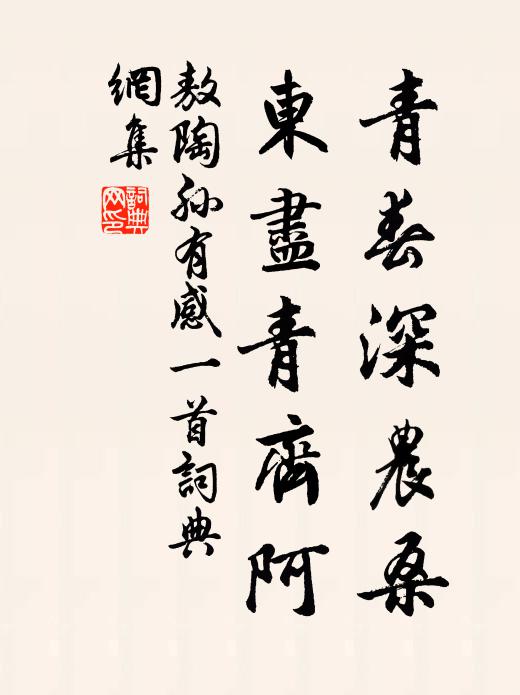 青春深農桑
東盡青齊阿
敖陶孫有感一首詞典
網集
詞典網印